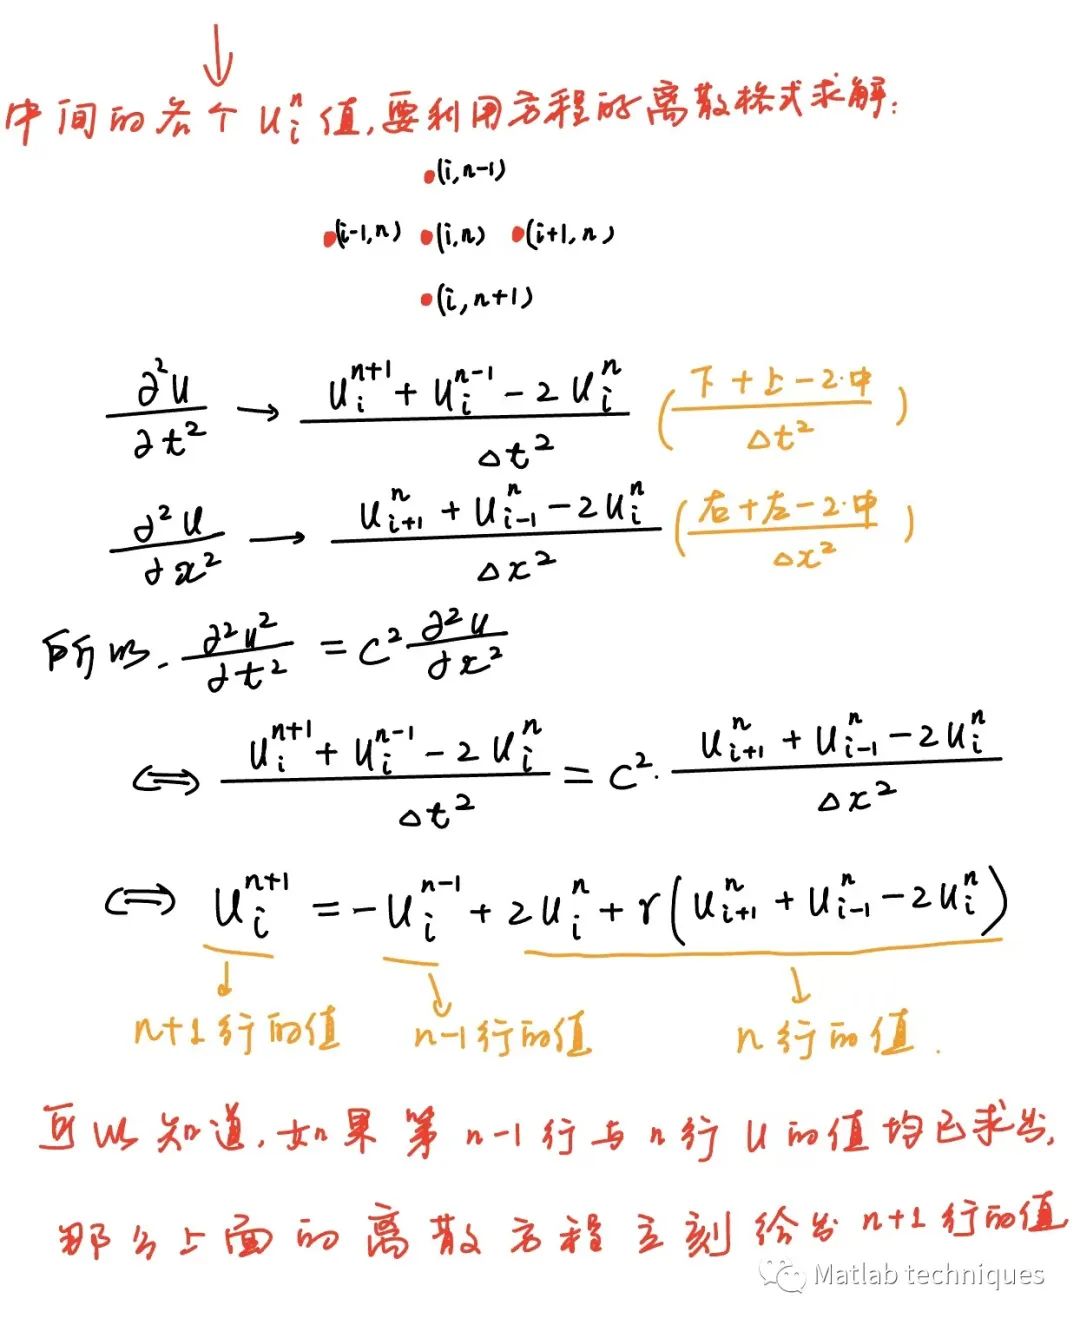 中间的各个 uᵢⁿ 值,要利用方程的离散格式求解:
(i,n-1)
(i-1,n) (i,n) (i+1,n)
(i,n+1)
∂²u/∂t² → (uᵢⁿ⁺¹ + uᵢⁿ⁻¹ - 2uᵢⁿ)/Δt² ((下+上-2·中)/Δt²)
∂²u/∂x² → (uᵢ₊₁ⁿ + uᵢ₋₁ⁿ - 2uᵢⁿ)/Δx² ((右+左-2·中)/Δx²)
所以. ∂²u²/∂t² = c² ∂²u/∂x²
⇔ (uᵢⁿ⁺¹ + uᵢⁿ⁻¹ - 2uᵢⁿ)/Δt² = c²·(uᵢ₊₁ⁿ + uᵢ₋₁ⁿ - 2uᵢⁿ)/Δx²
⇔ uᵢⁿ⁺¹ = -uᵢⁿ⁻¹ + 2uᵢⁿ + r(uᵢ₊₁ⁿ + uᵢ₋₁ⁿ - 2uᵢⁿ)
n+1行的值 n-1行的值 n行的值.
可以知道,如果第n-1行与n行u的值均已求出,
那么上面的离散方程立刻给出n+1行的值
Matlab techniques